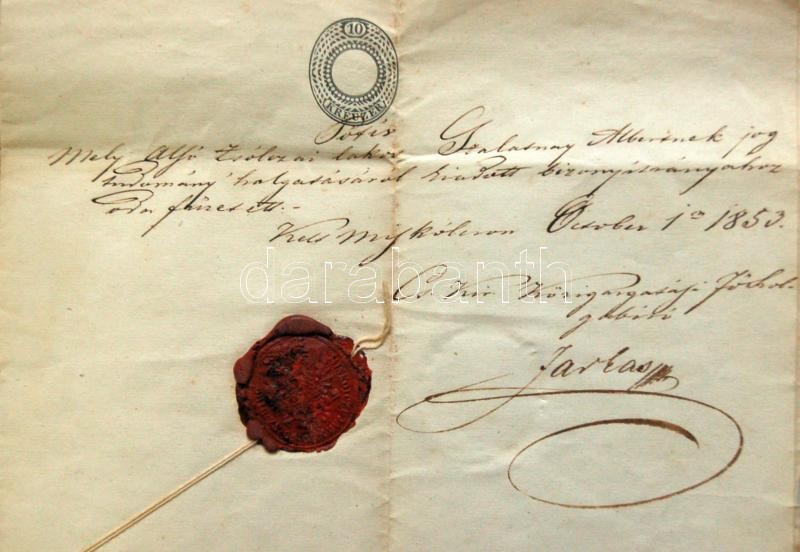 10
KREUZER
Mely Alsó Zsólczai lakos Szalasnay Albertnek jog
tudomány halgatásáról kiadott bizonyitványához
oda füzetett.-
Kelt Miskólczon October 1ᵒ 1853.
Cs. Kir. Közigazgatási Főszol-
gabiró
Farkas
darabanth